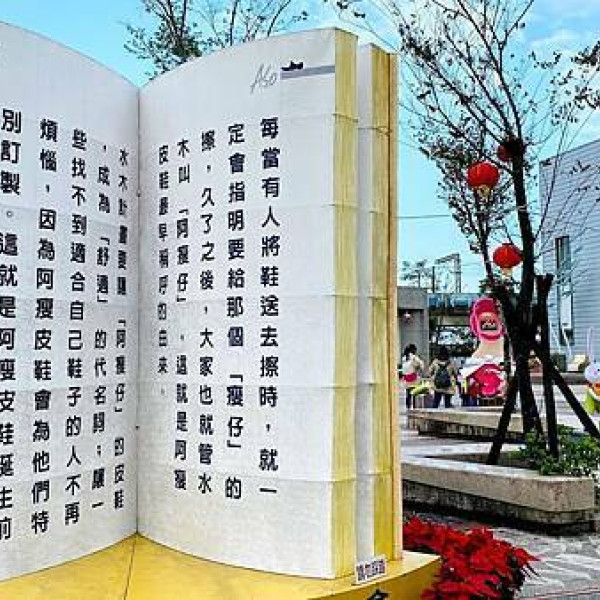 ASO
每當有人將鞋送去擦時，就一
定會指明要給那個「瘦仔」的
擦，久了之後，大家也就管水
木叫「阿瘦仔」，這就是阿瘦
皮鞋最早稱呼的由來。
水木計畫要讓「阿瘦仔」的皮鞋
，成為「舒適」的代名詞；讓一
些找不到適合自己鞋子的人不再
煩惱，因為阿瘦皮鞋會為他們特
別訂製。這就是阿瘦皮鞋誕生前